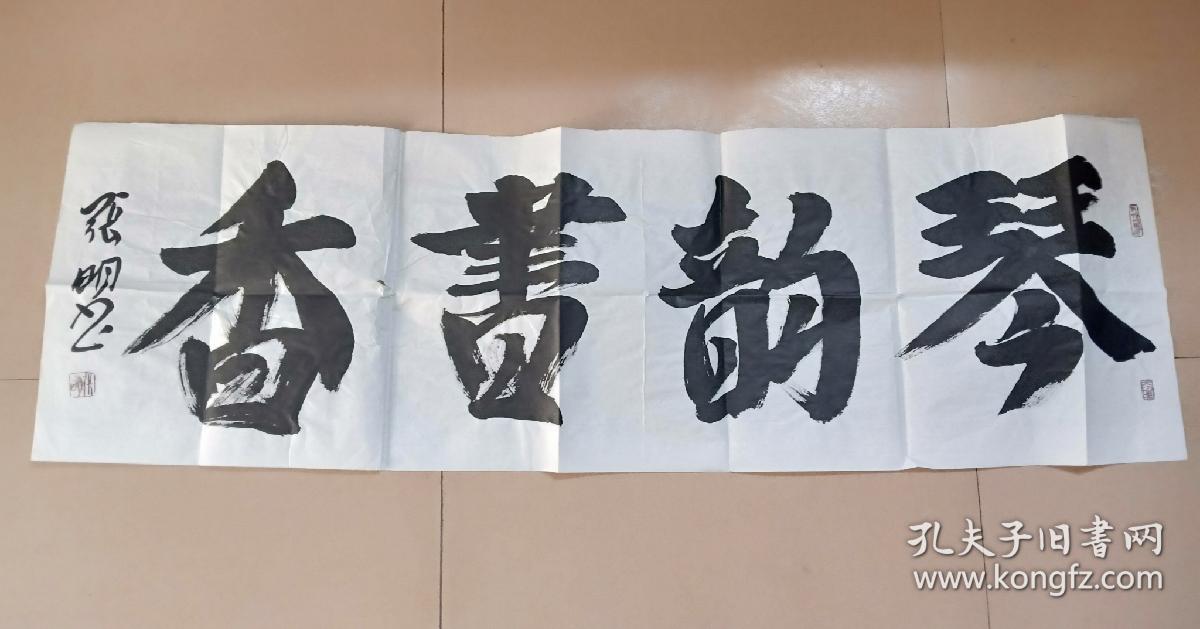 琴韵書香
張明书
孔夫子旧書网
www.kongfz.com